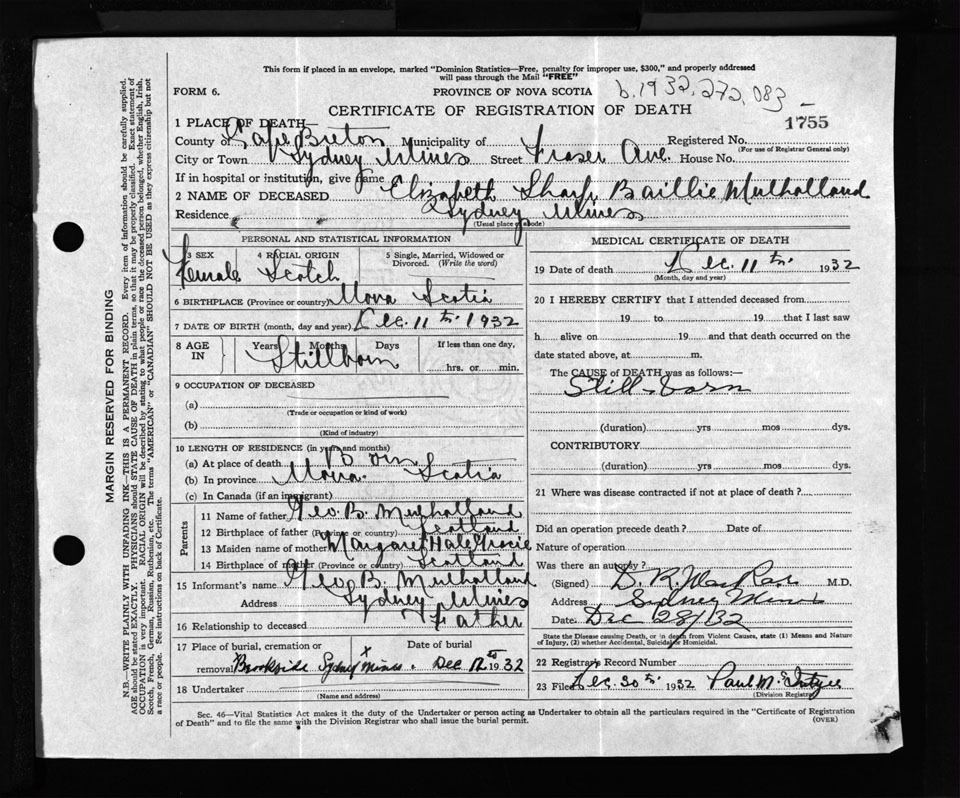 This form if placed in an envelope, marked "Dominion Statistics—Free, penalty for improper use, $300," and properly addressed
will pass through the Mail "FREE"
FORM 6.
PROVINCE OF NOVA SCOTIA
b.1932.272,083
CERTIFICATE OF REGISTRATION OF DEATH
1755
MARGIN RESERVED FOR BINDING
N.B.—WRITE PLAINLY WITH UNFADING INK—THIS IS A PERMANENT RECORD. Every item of information should be carefully supplied.
AGE should be stated EXACTLY. PHYSICIANS should STATE CAUSE OF DEATH in plain terms, so that it may be properly classified. Exact statement of
OCCUPATION is very important. RACIAL ORIGIN will be described by stating to what people or race the deceased person belonged, whether English, Irish,
Scotch, French, German, Russian, Ruthenian, etc. The terms "AMERICAN" or "CANADIAN" SHOULD NOT BE USED as they express citizenship but not
a race or people. See instructions on back of Certificate.
1 PLACE OF DEATH—
County of Cape Breton Municipality of Registered No.
(For use of Registrar General only)
City or Town Sydney Mines Street Fraser Ave. House No.
If in hospital or institution, give name
2 NAME OF DECEASED Elizabeth Sharp Baillie Mulholland
Residence Sydney Mines
(Usual place of abode)
PERSONAL AND STATISTICAL INFORMATION
3 SEX 4 RACIAL ORIGIN 5 Single, Married, Widowed or
Divorced. (Write the word)
Female Scotch
6 BIRTHPLACE (Province or country) Nova Scotia
7 DATE OF BIRTH (month, day and year) Dec. 11th 1932
8 AGE IN Years Months Days If less than one day,
Stillborn hrs. or min.
9 OCCUPATION OF DECEASED
(a)
(Trade or occupation or kind of work)
(b)
(Kind of industry)
10 LENGTH OF RESIDENCE (in years and months)
(a) At place of death Born
(b) In province Nova Scotia
(c) In Canada (if an immigrant)
Parents
11 Name of father Geo. B. Mulholland
12 Birthplace of father (Province or country) Scotland
13 Maiden name of mother Margaret Hale
14 Birthplace of mother (Province or country) Scotland
15 Informant's name Geo. B. Mulholland
Address Sydney Mines
16 Relationship to deceased Father
17 Place of burial, cremation or Date of burial
removal Brookside Sydney Mines. x Dec 12 1932
18 Undertaker
(Name and address)
MEDICAL CERTIFICATE OF DEATH
19 Date of death Dec. 11th 1932
(Month, day and year)
20 I HEREBY CERTIFY that I attended deceased from
19 to 19 that I last saw
h alive on 19 and that death occurred on the
date stated above, at m.
The CAUSE of DEATH was as follows:—
Still-born
(duration) yrs mos dys.
CONTRIBUTORY
(duration) yrs mos dys.
21 Where was disease contracted if not at place of death?
Did an operation precede death? Date of
Nature of operation
Was there an autopsy?
(Signed) D. R. MacRae M.D.
Address Sydney Mines
Date Dec 28/32
State the Disease causing Death, or in death from Violent Causes, state (1) Means and Nature
of Injury, (2) whether Accidental, Suicidal or Homicidal.
22 Registrar's Record Number
23 Filed Dec. 30th 1932 Paul McIntyre
(Division Registrar)
Sec. 46—Vital Statistics Act makes it the duty of the Undertaker or person acting as Undertaker to obtain all the particulars required in the "Certificate of Registration
of Death" and to file the same with the Division Registrar who shall issue the burial permit.
(OVER)